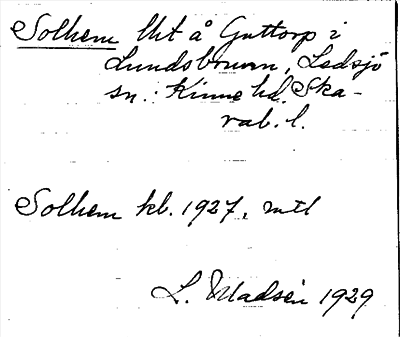 Solhem lht å Guttorp i
Lundsbrunn, Ledsjö
sn. Kinne hd. Ska-
rab. l.
Solhem kb. 1927, mtl
L. Madsén 1929